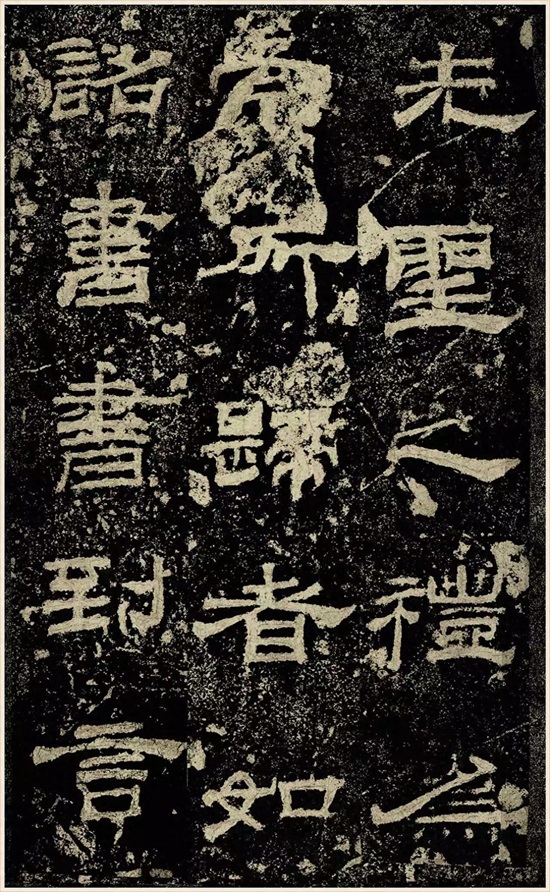 先聖之禮為
所歸者如
諸書書到言